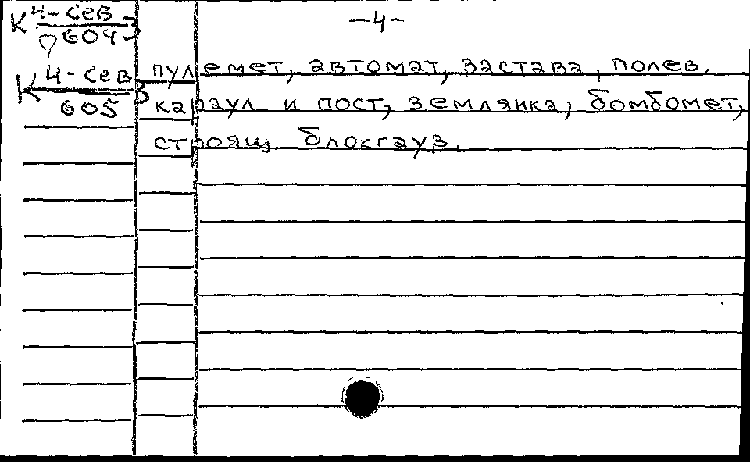 К 4-сев/604 3 —4—
К 4-сев/605 3 пулемет, автомат, застава, полев.
караул и пост, землянка, бомбомет,
строящ. блокгауз.